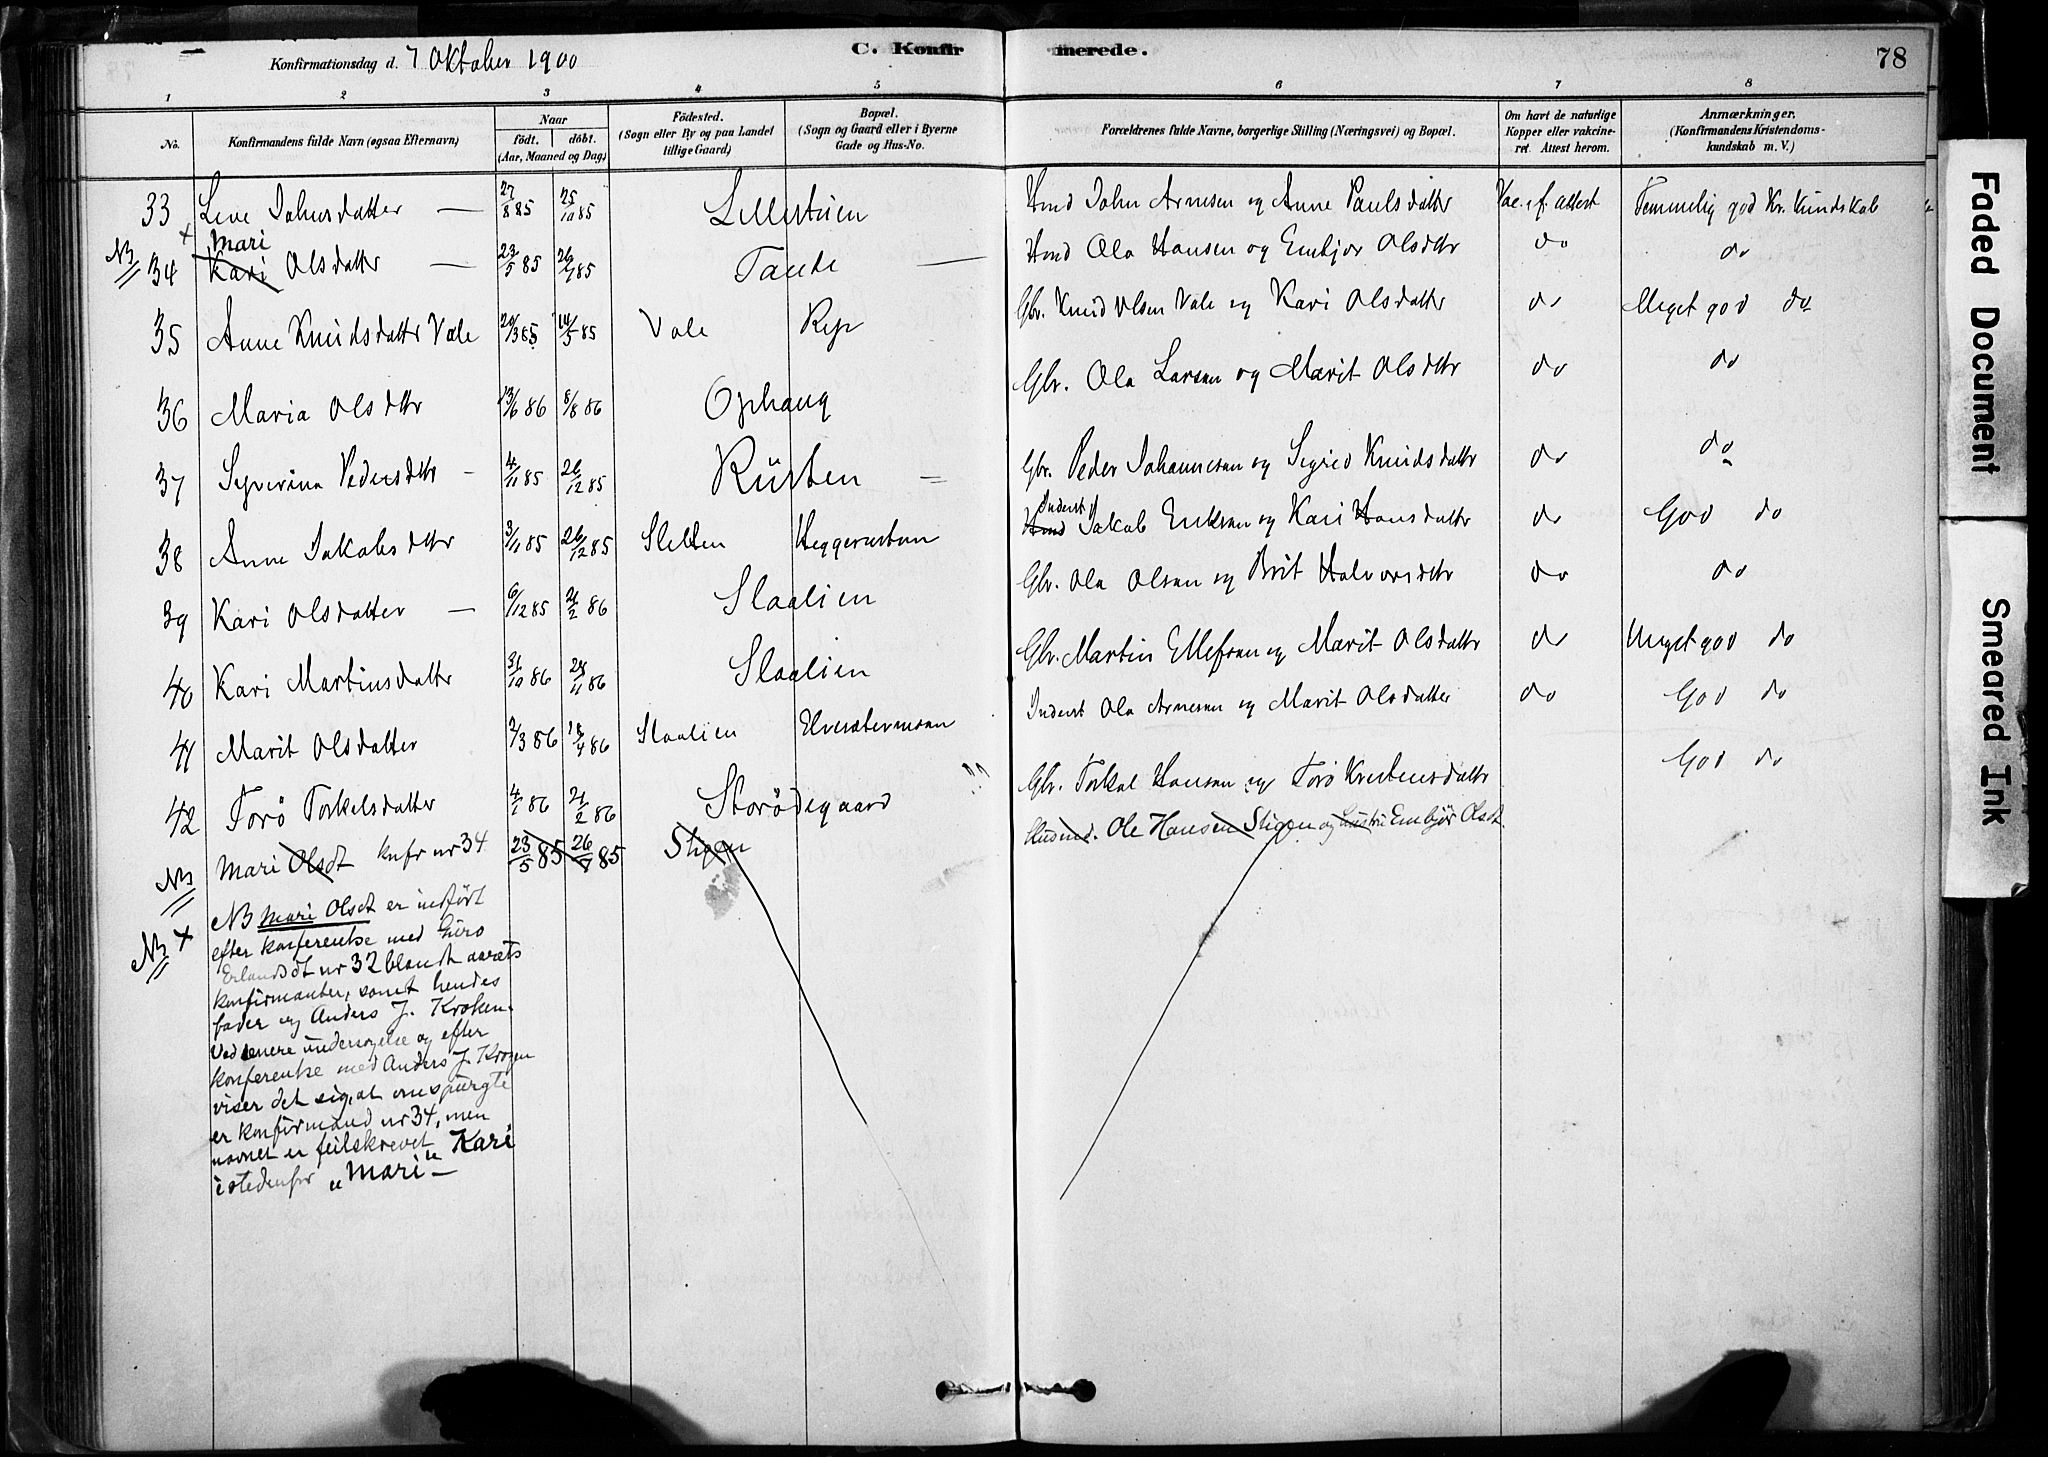 Konfirmationsdag d. 7 Oktober 1900
C. Konfirmerede.
78
1 2 3 4 5 6 7 8
No.
Konfirmandens fulde Navn (ogsaa Efternavn)
Naar
født. døbt.
(Aar, Maaned og Dag)
Fødested.
(Sogn eller By og paa Landet tillige Gaard)
Bopæl.
(Sogn og Gaard eller i Byerne Gade og Hus-No.
Forældrenes fulde Navne, borgerlige Stilling (Næringsvei) og Bopæl.
Om havt de naturlige Kopper eller vakcineret. Attest herom.
Anmærkninger.
(Konfirmandens Kristendomskundskab m. V.)
33 Lene Johnsdatter — 27/8 85 25/10 85 Lillestuen Hmd John Arnesen og Anne Paulsdatter Vac. f. attest Temmelig god Kr. Kundskab
NB 34 Mari Kari Olsdattr — 23/5 85 26/7 85 Hmd Ola Hansen og Embjør Olsdtr do do
35 Anne Knudsdattr Vale 20/3 85 14/5 85 Vale Gbr. Knud Olsen Vale og Kari Olsdatter do Meget god do
36 Maria Olsdtr 13/6 86 8/8 86 Ophaug Gbr. Ola Larsen og Marit Olsdtr do do
37 Syverina Pedersdtr - 4/11 85 26/12 85 Rusten = Gbr. Peder Johannesen og Sigrid Knudsdattr do do
38 Anne Jakobsdtr 3/11 85 26/12 85 Sletten Heggerusten Inderst Hmd Jakob Eriksen og Kari Hansdatter do God do
39 Kari Olsdatter — 6/12 85 21/2 86 Slaalien Gbr. Ola Olsen og Brit Halvorsdtr do do
40 Kari Martinsdattr 31/10 86 28/11 86 Slaalien Gbr. Martin Ellefsen og Marit Olsdattr do Meget god do
41 Marit Olsdatter 2/3 86 18/4 86 Slaalien Inderst Ola Arnesen og Marit Olsdatter do God do
42 Torø Torkelsdatter 4/1 86 21/2 86 Storødegaard Gbr. Torkel Hansen og Torø Kristensdattr God do
NB Mari Olsdt knfr nr 34 23/5 85 26/7 85 Stigen Husmd. Ole Hansen Stigen og hustru Embjør Olsdt.
NB + NB Mari Olsdt er indført
efter konferentse med Guro
Erlandsdt nr 32 blandt aarets
konfirmanter, samt hendes
fader og Anders J. Kroken.
Ved senere undersøgelse og efter
konferentse med Anders J. Krogen
viser det sig, at omspurgte
er konfirmand nr 34, men
navnet er feilskrevet Kari
istedenfor „Mari" —
Faded Document
Smeared Ink